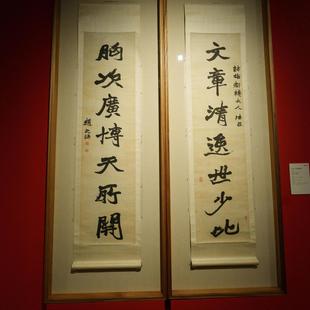 文章清逸世少比
胸次廣博天所開
趙之謙